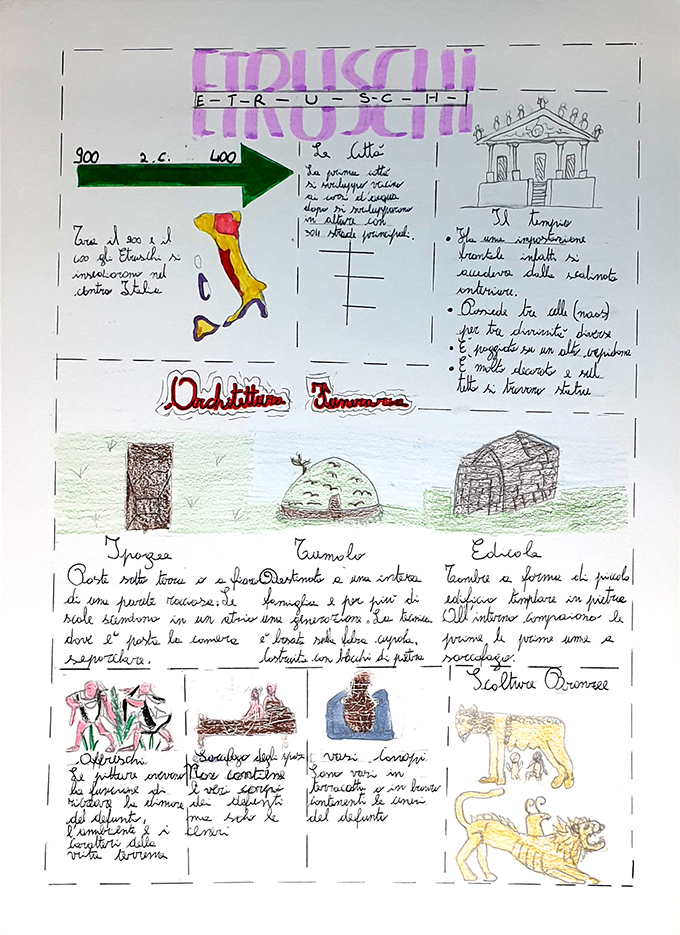 ETRUSCHI
E-T-R-U-S-C-H-I
900 a.C. 400
Tra il 900 e il
400 gli Etruschi si
insediarono nel
centro Italia
La Città
La prima città
si sviluppò vicino
ai corsi d'acqua
dopo si svilupparono
in altura con
strade principali.
Il tempio
• Ha una impostazione
frontale infatti si
accedeva dalla scalinata
anteriore.
• Possiede tre celle (naos)
per tre divinità diverse
• È poggiato su un alto
• È molto decorato e sul
tetto si trovano statue
Architettura Funeraria
Ipogea
Poste sotto terra o a fianco
di una parete rocciosa. Le
scale scendono in un atrio
dove è posta la camera
sepolcrale.
Tumolo
Destinato a una intera
famiglia e per più di
una generazione. La tecnica
è basata sulla falsa cupola,
costruita con blocchi di pietra
Edicola
Tombre a forma di piccolo
edificio templare in pietra
All'interno compaiono le
prime le prime urne a
sarcofago.
Affreschi
Le pitture avevano
la funzione di
ricreare la dimora
del defunto,
l'ambiente e i
caratteri della
vita terrena
Sarcofago degli sposi
Non contiene
i veri corpi
dei defunti
ma solo le
ceneri
I vasi canopi
Sono vasi in
terracotta o in bronzo
continenti le ceneri
del defunto
Scolture Bronzee